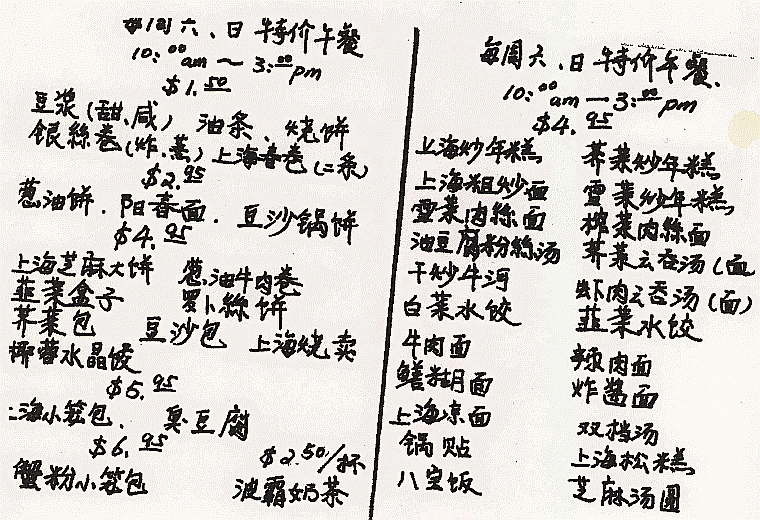 每周六、日特价午餐
10:00am~3:00pm
$1.50
豆浆(甜、咸) 油条、烧饼
银絲卷(炸、蒸) 上海春卷(二条)
$2.95
葱油饼、阳春面、豆沙锅饼
$4.95
上海芝麻大饼 葱油牛肉卷
韭菜盒子 罗卜絲饼
荠菜包 豆沙包 上海烧卖
椰蓉水晶饺
$5.95
上海小笼包、臭豆腐
$6.95 $2.50/杯
蟹粉小笼包 波霸奶茶
每周六、日特价午餐、
10:00am—3:00pm
$4.95
上海炒年糕 荠菜炒年糕
上海粗炒面 雪菜炒年糕
雪菜肉絲面 榨菜肉絲面
油豆腐粉絲汤 荠菜云吞汤(面
干炒牛河 虾肉云吞汤(面)
白菜水饺 韭菜水饺
牛肉面 辣肉面
鳝糊面 炸酱面
上海凉面 双档汤
锅贴 上海松糕
八宝饭 芝麻汤圆